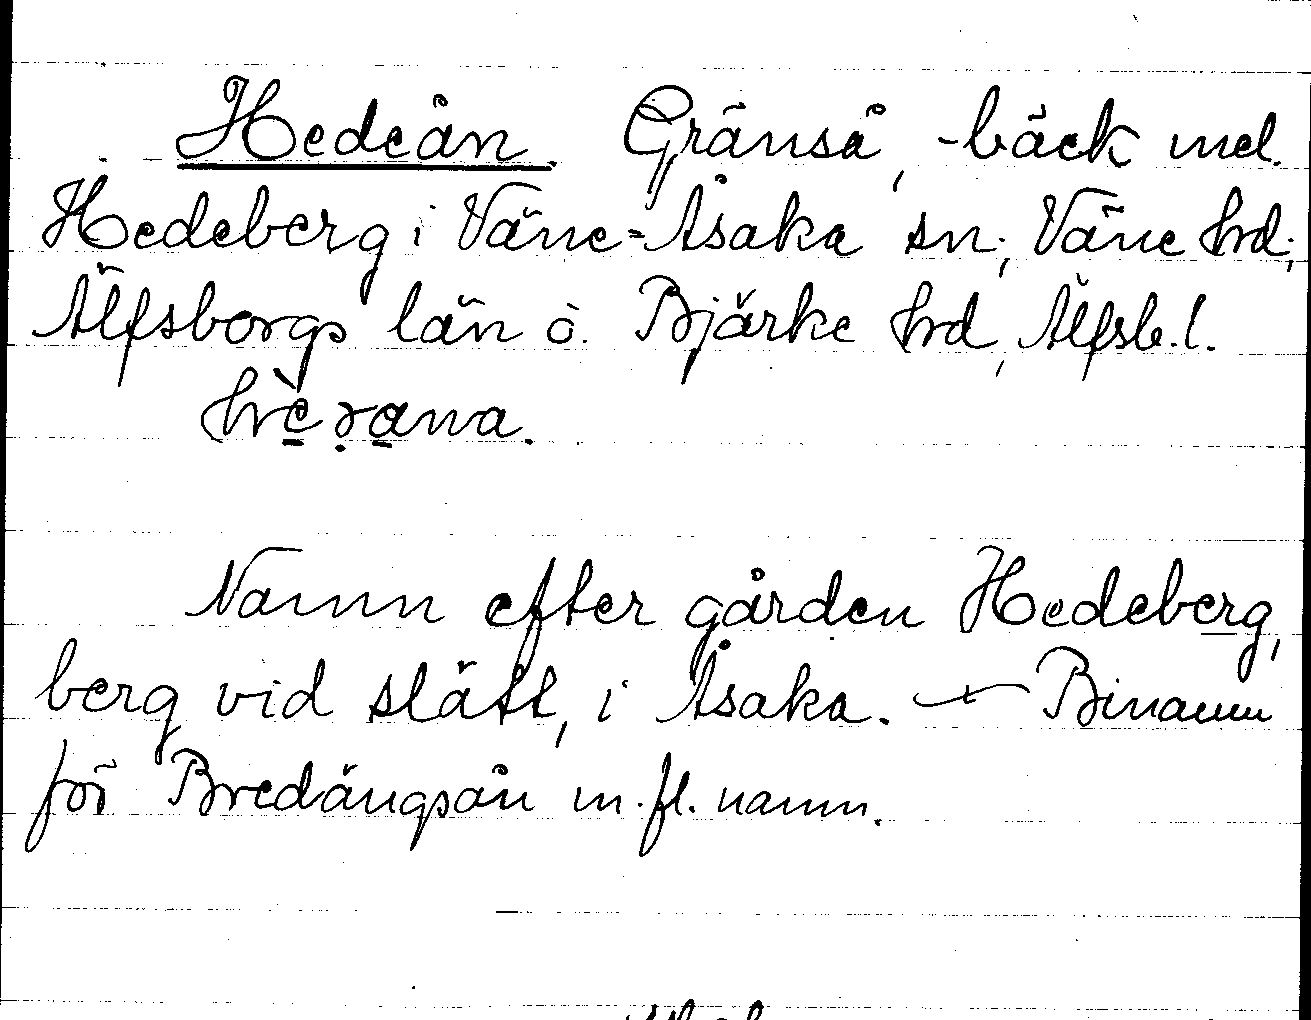 Hedeån. Gränså, -bäck mel.
Hedeberg i Väne-Åsaka sn; Väne hd;
Älfsborgs län o. Bjärke hd, Älfsb. l.
Namn efter gården Hedeberg,
berg vid slätt, i Åsaka. — Binamn
för Bredängsån m. fl. namn.